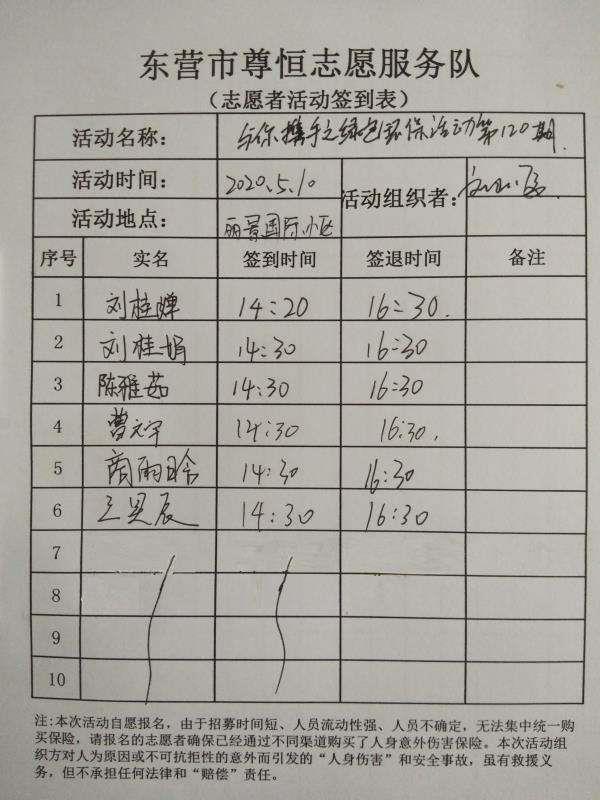 东营市尊恒志愿服务队
（志愿者活动签到表）
活动名称： 与你携手之绿色环保活动第120期.
活动时间： 2020.5.10 活动组织者：
活动地点： 丽景国际小区
序号 实名 签到时间 签退时间 备注
1 刘桂 14:20 16:30.
2 刘桂娟 14:30 16:30
3 陈雅茹 14:30 16:30
4 曹元宇 14:30 16:30.
5 商雨晗 14:30 16:30
6 王昊辰 14:30 16:30
7
8
9
10
注:本次活动自愿报名，由于招募时间短、人员流动性强、人员不确定，无法集中统一购
买保险，请报名的志愿者确保已经通过不同渠道购买了人身意外伤害保险。本次活动组
织方对人为原因或不可抗拒性的意外而引发的“人身伤害”和安全事故，虽有救援义
务，但不承担任何法律和“赔偿”责任。